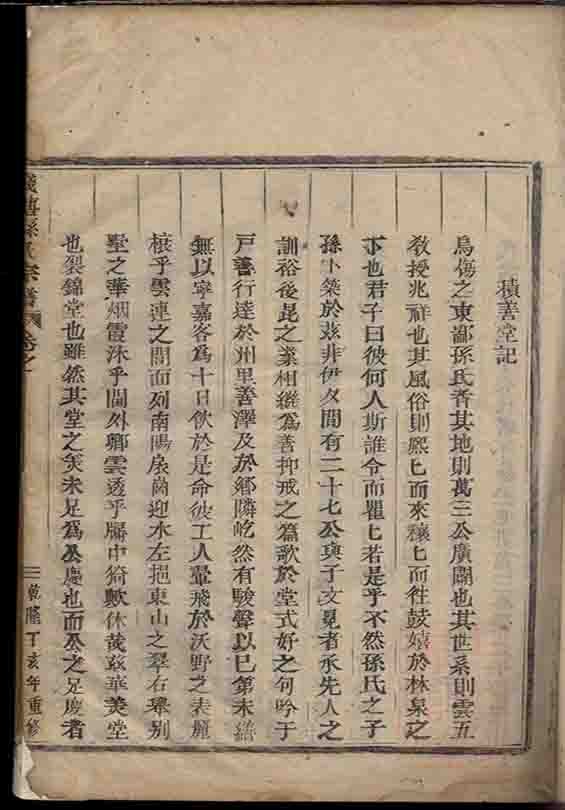 積善堂記
烏傷之東鄙孫氏者其地則萬三公廣闢也其世系則雲五
教授兆祥也其風俗則熙匕而來穰匕而徃鼓嬉於林泉之
下也君子曰彼何人斯誰令而瞿匕若是乎不然孫氏之子
孫卜築於兹非伊夕間有二十七公與子文冕者承先人之
訓裕後昆之業相繼爲善抑戒之篇歌於堂式好之句吟于
戸善行達於州里善澤及於鄉隣屹然有駿聲以巳第未繕
無以寧嘉客爲十日飲於是命彼工人翬飛於沃野之表麗
棟乎雲連之閣面列南陽扆崗迎水左挹東山之翠右攀别
墅之華烟霞沐乎閫外卿雲透乎牖中猗歟休哉兹華美堂
也裂錦堂也雖然其堂之美未足爲公慶也而公之足慶者
孫氏宗譜 卷之
乾隆丁亥年重修